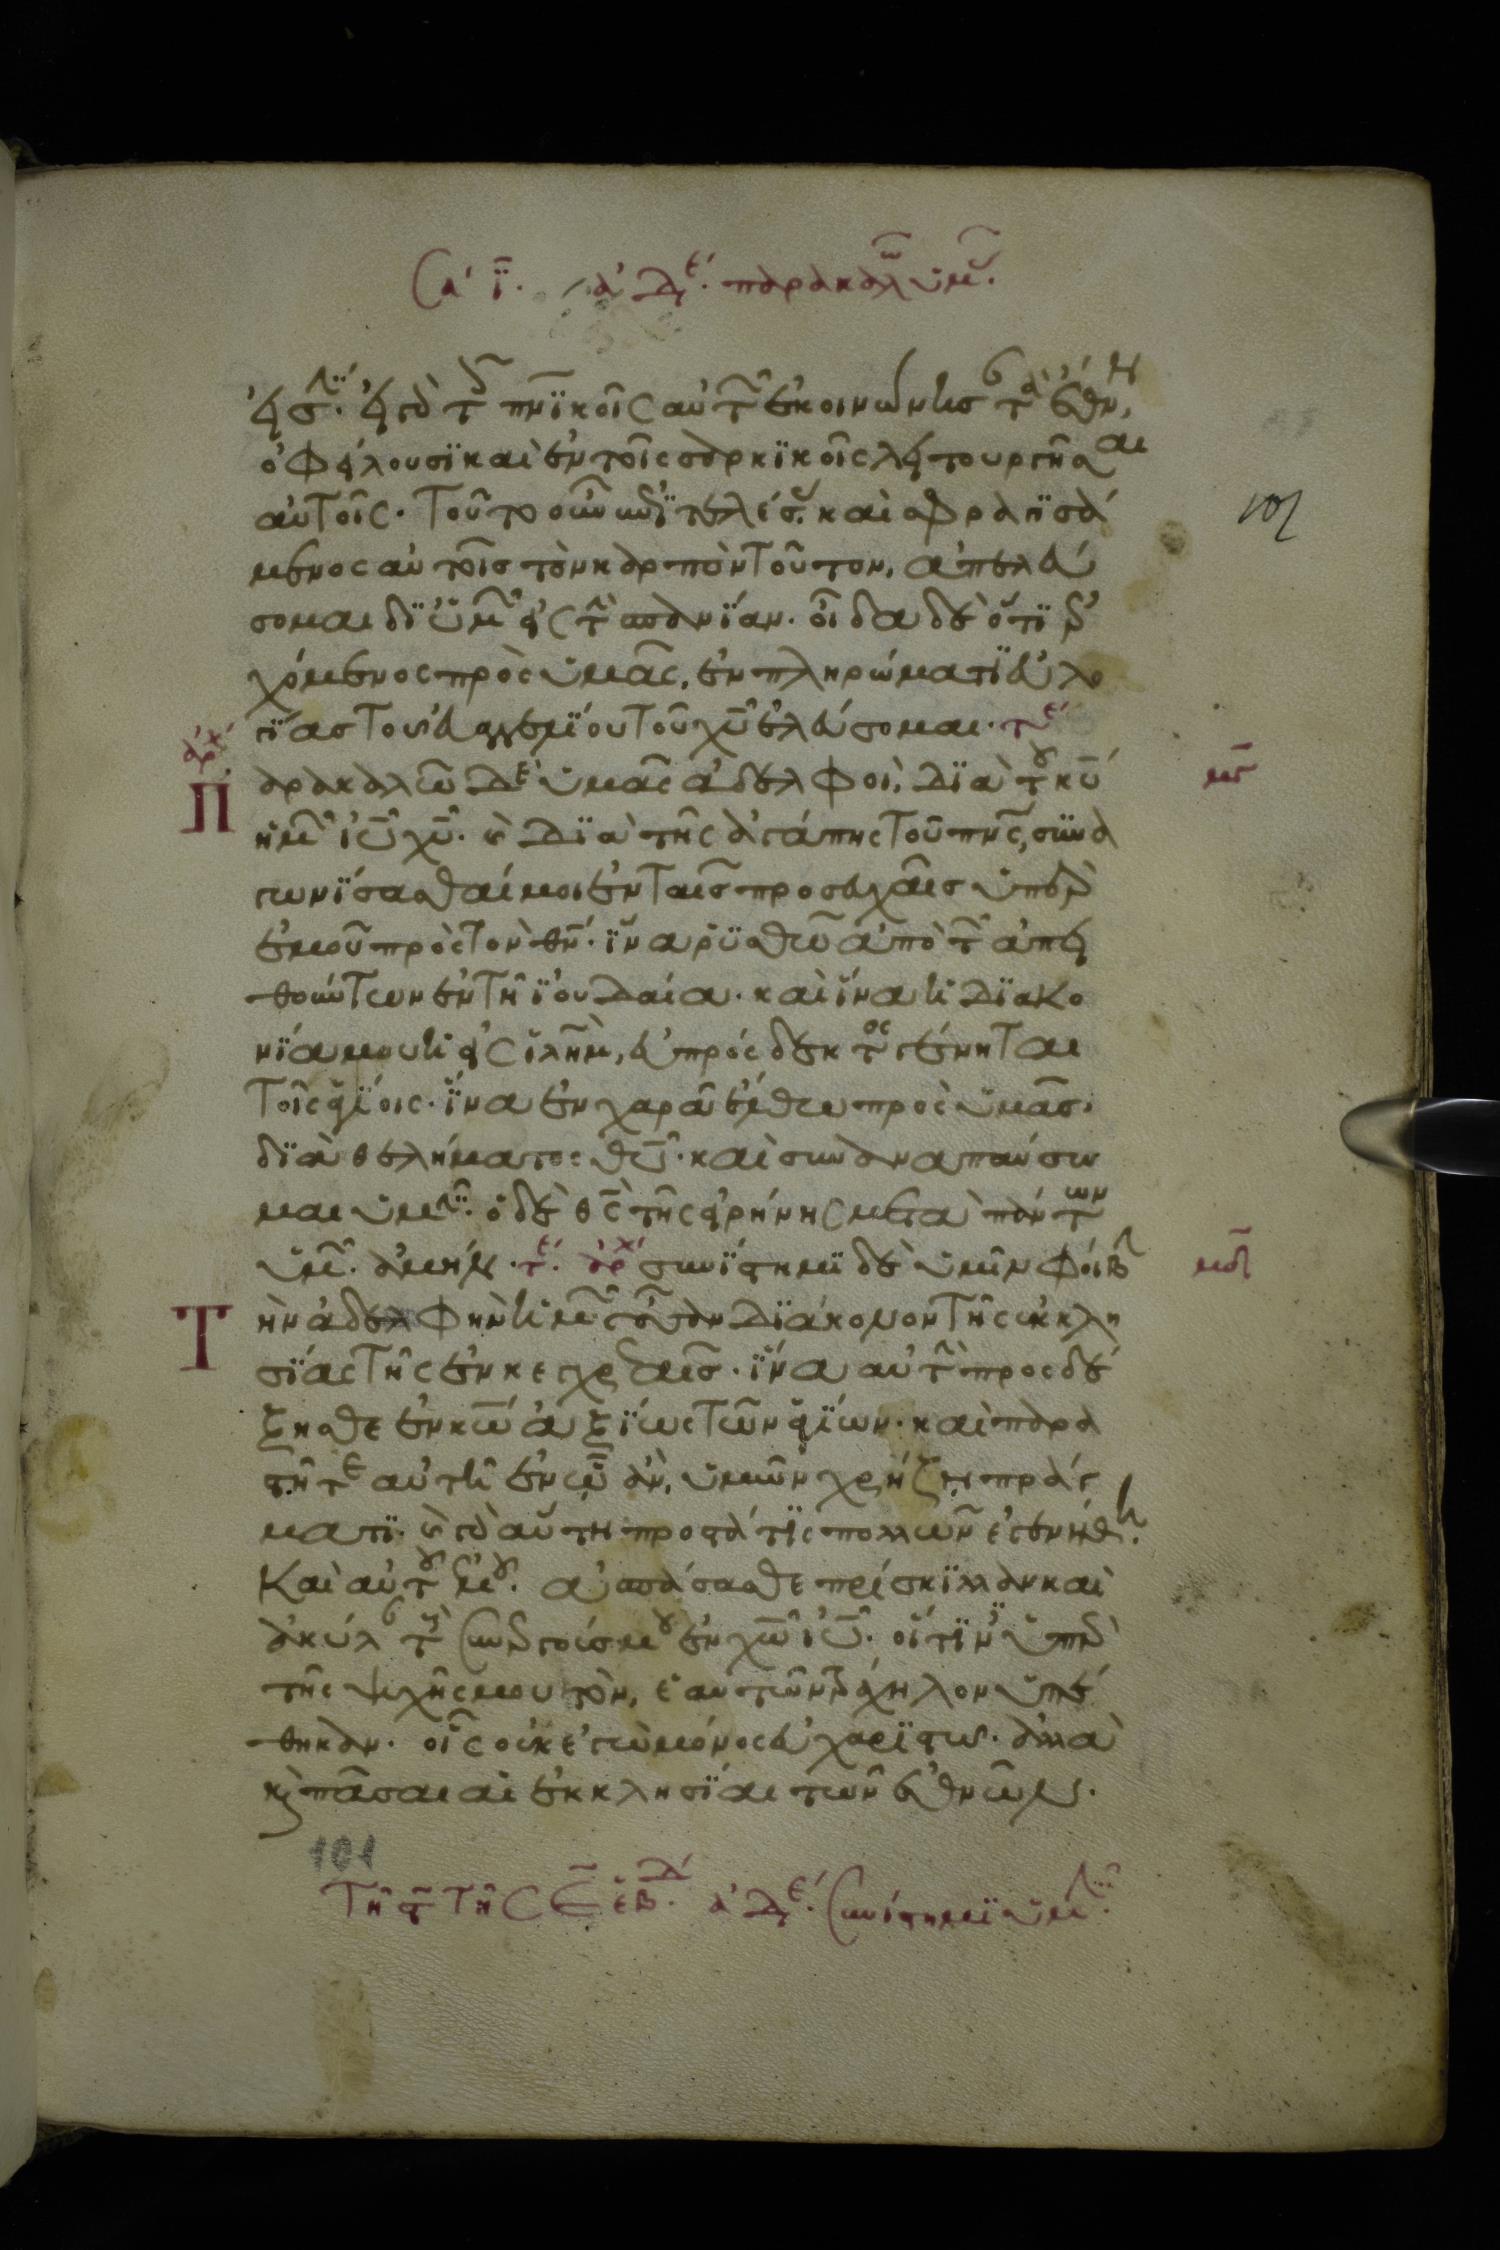 Σα ι̅. ἀδε. παρακαλῶ ὑμ.
εἰσιν. εἰ γὰρ τ πνϊκοῖς αὐτ ἐκοινώνησ τὰ ἔθνη,
ὀφείλουσϊ καὶ ἐν τοῖς σαρκϊκοῖς λειτουργῆσαι
αὐτοῖς. τοῦτο οὖν ἐπϊτελέσ. καὶ σφραγϊσά
μενος αὐτοῖς τὸν καρπὸν τοῦτον, ἀπελεύ
σομαι δϊ ὑμ εἰς τ σπανίαν. οἶδα δὲ ὅτϊ ἐρ
χόμενος πρὸς ὑμᾶς, ἐν πληρώματϊ εὐλο
γϊας τοῦ εὐαγγελϊου τοῦ χυ ἐλεύσομαι. τε
αρχ
Παρακαλῶ δὲ ὑμᾶς ἀδελφοὶ, δϊὰ τοῦ κυ
ἡμ ιυ χυ. κ δϊὰ τῆς ἀγάπης τοῦ πνς, συνα
γωνϊσασθαί μοι ἐν ταῖς προσευχαῖς ὑπὲρ
ἐμοῦ πρὸς τὸν θν. ἵνα ῥυσθῶ ἀπὸ τ ἀπει
θούντων ἐν τῆ ϊουδαία. καὶ ἵνα ἡ δϊακο
νϊα μου ἡ εἰς ϊλημ, εὐπρόσδεκτος γένηται
τοῖς ἁγϊοις. ἵνα ἐν χαρᾶ ἔλθω πρὸς ὑμᾶς.
δϊὰ θελήματος θυ. καὶ συναναπαύσω
μαι ὑμῖν. ὁ δὲ θς τῆς εἰρήνης μετὰ πάντων
ὑμ. ἀμήν. τε. αρχ συνϊστημϊ δὲ ὑμῖν φοίβ
Τὴν ἀδελφὴν ἡμ οὖσαν δϊάκονον τῆς ἐκκλη
σϊας τῆς ἐν κεγχρεαῖς. ἵνα αὐτ προσδέ
ξησθε ἐν κω ἀξϊως τῶν ἁγϊων. καὶ παρα
στῆτε αὐτῆ ἐν ὧ ἂν, ὑμῶν χρήζη πράγ
ματϊ. κ γὰρ αὕτη προστάτϊς πολλῶν ἐγενήθη.
Καὶ αὐτοῦ ἐμοῦ. ἀσπάσασθε πρίσκϊλλαν καὶ
ἀκύλ τοὺς συνεργούς μου ἐν χω ιυ. οἵτϊν ὑπὲρ
τῆς ψυχῆς μου τὸν, ἑαυτῶν τράχηλον ὑπέ
θηκαν. οἷς οὐκ ἐγὼ μόνος εὐχαρϊστῶ. ἀλλὰ
κ πᾶσαι αἱ ἐκκλησϊαι τῶν ἐθνῶν.
101
Τῆ ϛ τῆς ε ἑβδ. ἀδε. συνίστημϊ ὑμῖν.